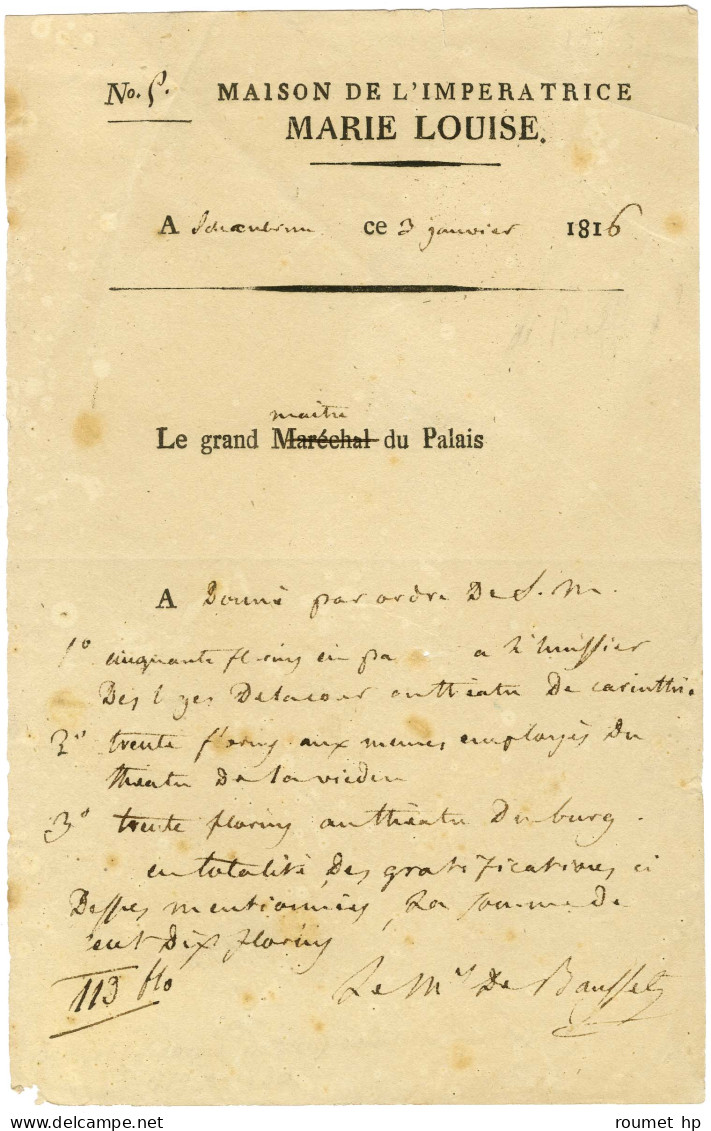 No. 5. MAISON DE L'IMPERATRICE
MARIE LOUISE.
A Schoenbrunn ce 3 janvier 1816
maitre
Le grand Maréchal du Palais
A Donné par ordre De S. M.
1º cinquante florins en pa a l'huissier
Des l ges De la cour au theatre De carinthie
2º trente florins aux memes employés Du
theatre De la vieden
3º trente florins au theatre Du burg.
en totalité, Des gratifications ci
Dessus mentionnées, La somme de
cent Dix florins
113 flo Le Mis De Bausset
roumet hp